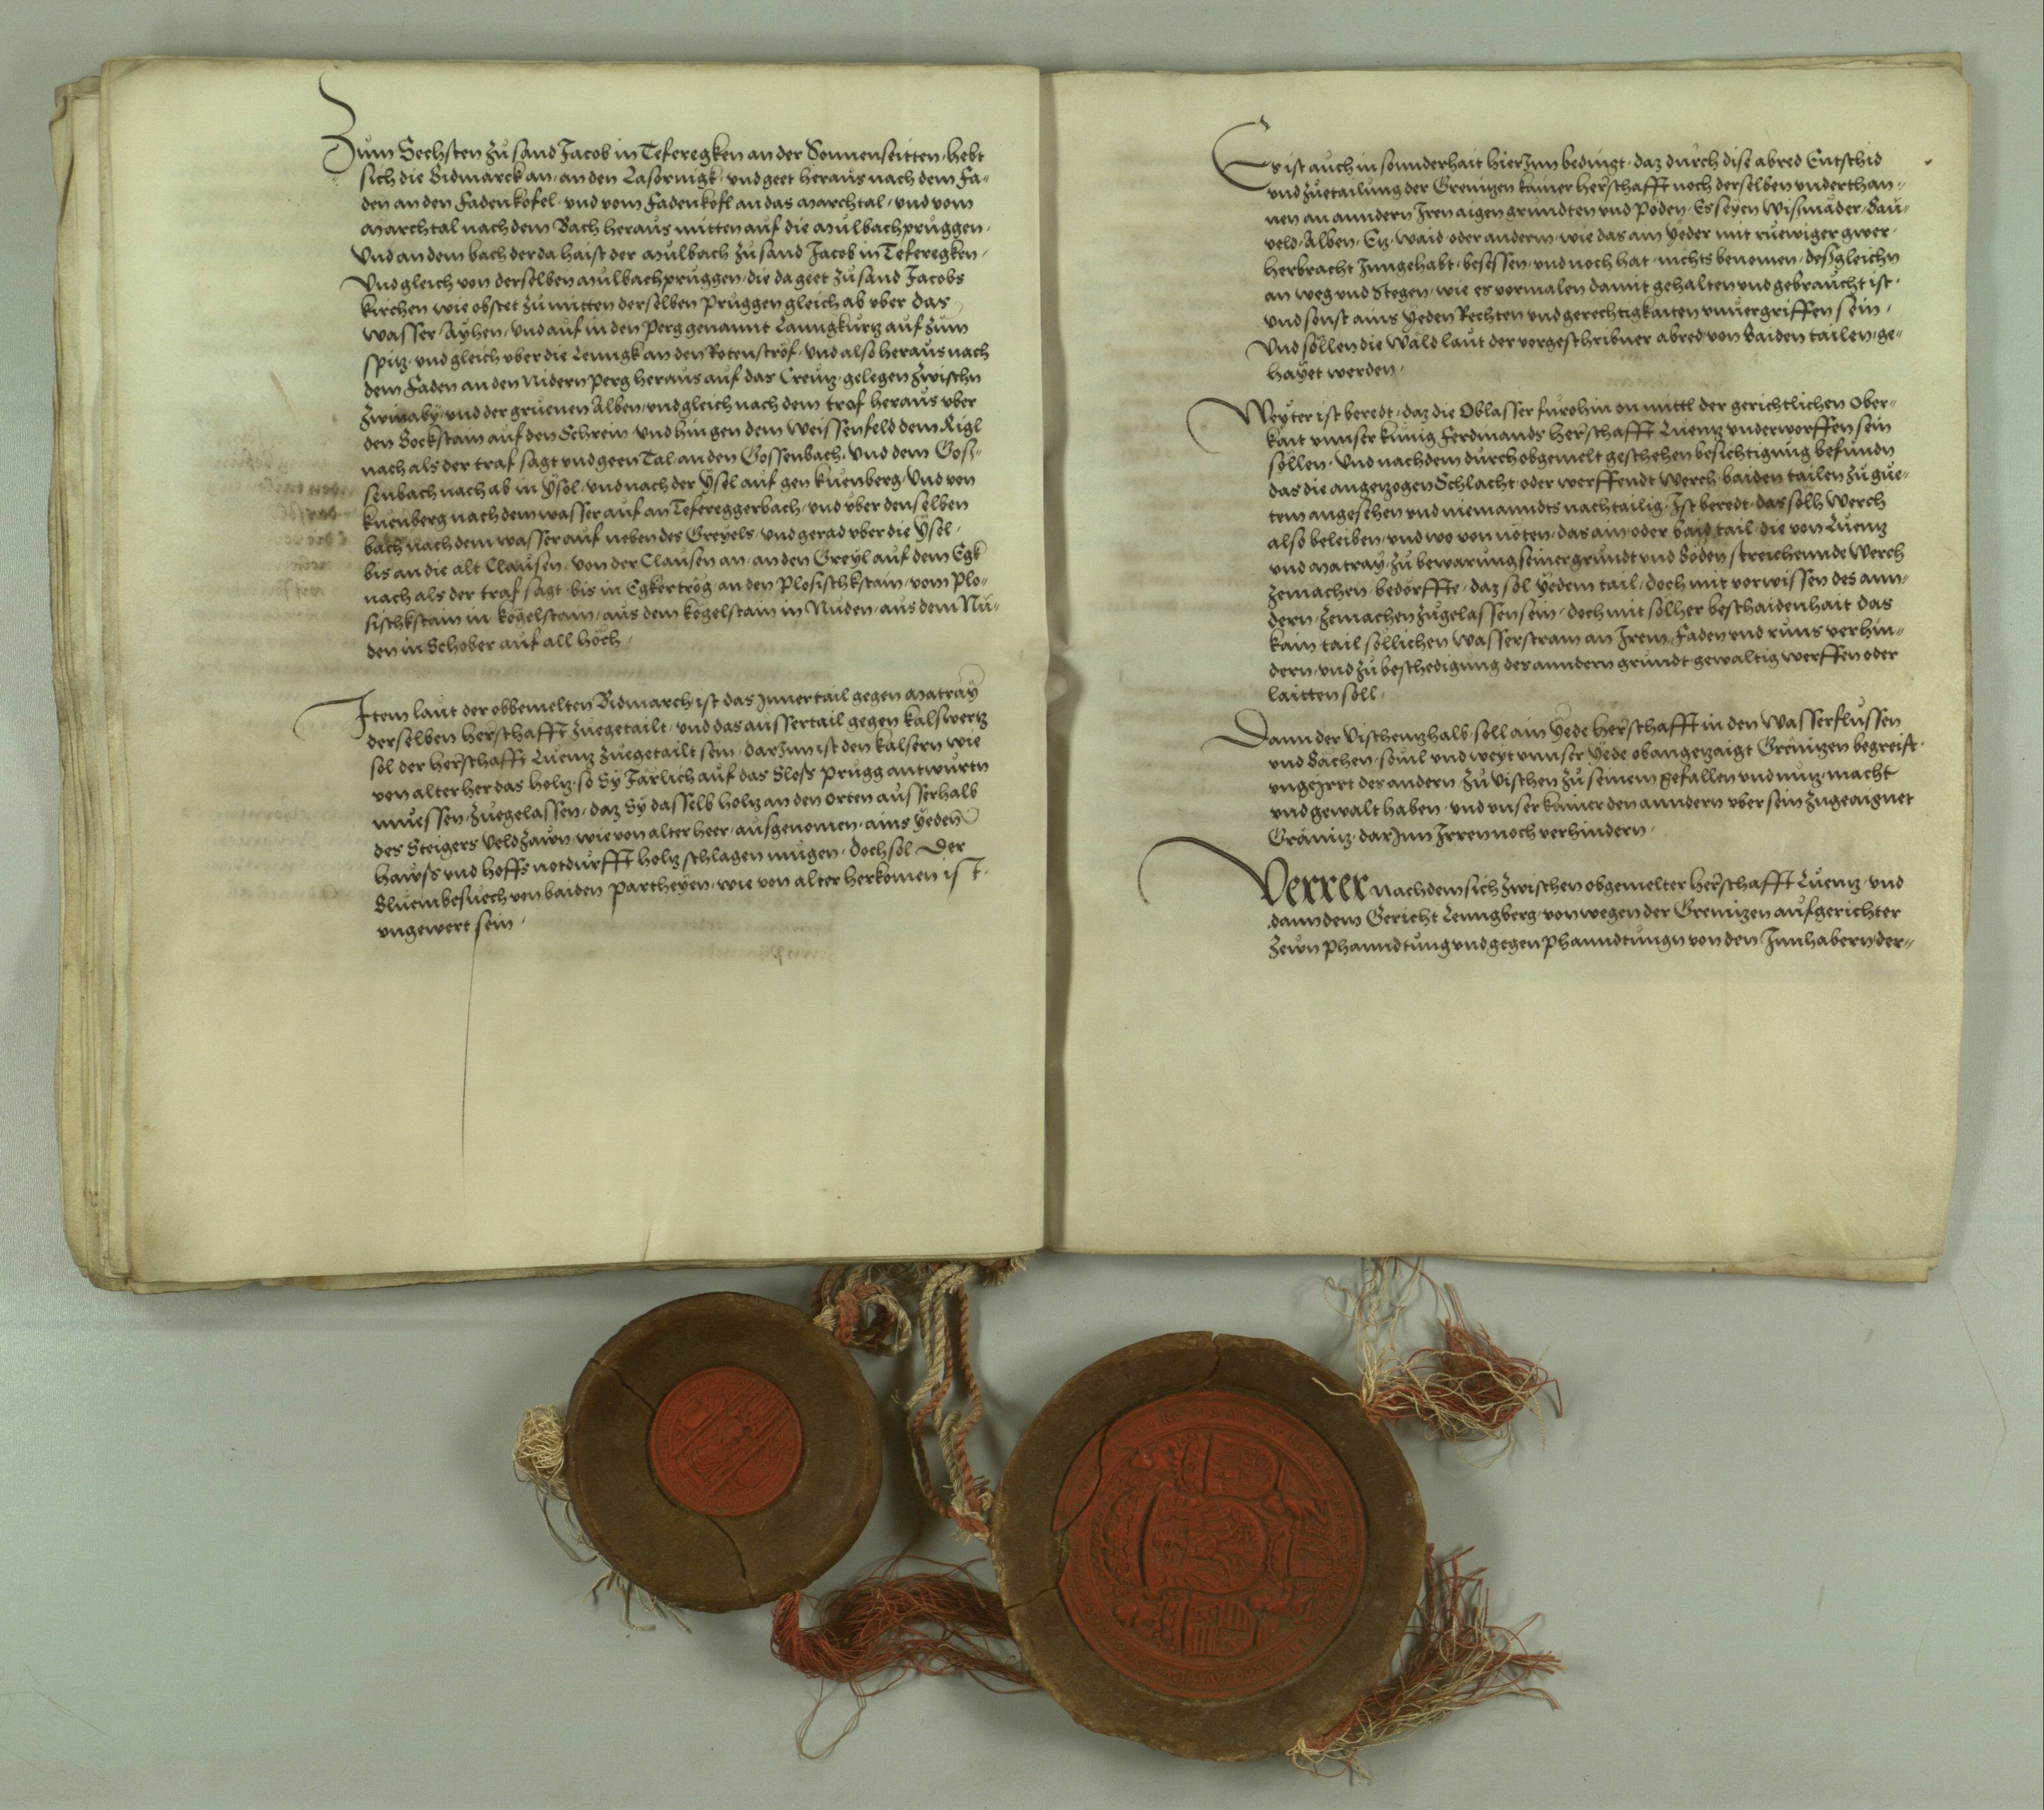 Zum Sechsten zu sand Jacob in Teferegken an der Sonnenseitten, hebt
sich die Bidmarck an, an den Lasornigk, und geet heraus nach dem Fa-
den an den Fadenkofel, und vom Fadenkofl an das Marchtal, und vom
Marchtal nach dem Bach heraus mitten auf die Mulbachpruggen,
Und an dem bach der da haist der Mulbach zu sand Jacob in Teferegken,
Und gleich von derselben Mulbachpruggen, die da geet zu sand Jacobs
kirchen wie obstet zu mitten derselben pruggen gleich ab uber das
wasser Ayhen, und auf in den perg genannt Lanngkurtz auf zum
spitz, und gleich uber die Lenngk an den Rotenströf, und also heraus nach
dem Faden an den Nidern perg heraus auf das Creutz, gelegen zwischn
Zwinaby, und der gruenen Alben, und gleich nach dem traf heraus uber
den Bockstain auf den Schrein und hin gen dem Weissenfeld dem Rigl
nach als der traf sagt und geen Tal an den Gossenbach, und dem Gos-
senbach nach ab in Ysol, und nach der Ysel auf gen kuenberg, Und von
kuenberg nach dem wasser auf an Tefereggerbach, und uber denselben
bach nach dem wasser auf neben des Greyels, und gerad uber die Ysel,
bis an die alt Clausen, von der Clausen an, an den Greyl auf dem Egk
nach als der traf sagt, bis in Egkertrög, an den Plosischkstain, vom Plo-
sischkstain in kögelstain, aus dem kögelstain in Nuden, aus dem Nu-
den in Schober auf all höch,
Item laut der obbemelten Bidmarch ist das Inner tail gegen Matray
derselben herschafft zuegetailt, und das ausser tail gegen kalswertz
sol der herschafft Luentz zuegetailt sein, darInn ist den kalsern wie
von alter her das holtz, so Sy Järlich auf das Slos prugg antwurtn
muessen, zuegelassen, daz Sy dasselb holtz an den orten ausserhalb
des Steigers Veldzawn, wie von alter heer, ausgenomen, ains yeden
hawss und hoffs notdurfft holtz schlagen mugen, doch sol der
Bluembesuech von baiden partheyen, wie von alter herkomen ist,
ungewert sein,
Es ist auch in sonnderhait hierInn bedingt, daz durch dise abred Entschid
und zuetailung der Grenitzen kainer herschafft noch derselben underthan-
nen an anndern Iren aigen grundten und poden, Es seyen Wismäder, Bau-
veld, Alben, Etz, waid oder anderm, wie das ain yeder mit ruewiger gwer,
herbracht Inngehabt, besessen, und noch hat, nichts benomen, desgleichn
an weg und Stegen, wie es vormalen damit gehalten und gebraucht ist,
und sonst ains yeden Rechten und gerechtigkaiten unvergriffen sein,
Und sollen die Wäld laut der vorgeschribner abred von baiden tailen, ge-
hayet werden,
Weyter ist beredt, daz die Oblasser furohin on mittl der gerichtlichen Ober-
kait unnser kunig Ferdinands herschafft Luentz underworffen sein
söllen, Und nachdem durch obgemelt geschehen besichtigung befundn
das die angetzogen Schlacht, oder werffendt Werch, baiden tailen zu gue-
tem angesehen und niemanndts nachtailig, Ist beredt, das sölh Werch
also beleiben, und wo von nöten, das ain, oder baid tail, die von Luentz
und Matray, zu bewarung seiner grundt und Böden streichennde Werch
zemachen, bedörffte, daz sol yedem tail, doch mit vorwissen des ann-
dern, zemachen zugelassen sein, doch mit sölher beschaidenhait das
kain tail sollichen Wasserstram an Irem Faden und runs verhin-
dern, und zu beschedigung des anndern grundt gewaltig werffen oder
laitten soll,
Dann der Vischentz halb, soll ain yede herschafft in den Wasserflussen
und Bächen, sovil und weyt unnser yede obangezaigt Grenitzen begreift,
ungeirrt des andern, zu Vischen zu seinem gefallen und nutz, macht
und gewalt haben, und unser kainer den anndern uber sein zugeaignet
Gränitz, darInn Irren noch verhindern,
Verrer nachdem sich zwischen obgemelter herschafft Luentz, und
dann dem Gericht Lenngberg, von wegen der Grenitzen aufgerichter
Zewn phanndtung und gegen phanndtungn von den Innhabern, der-